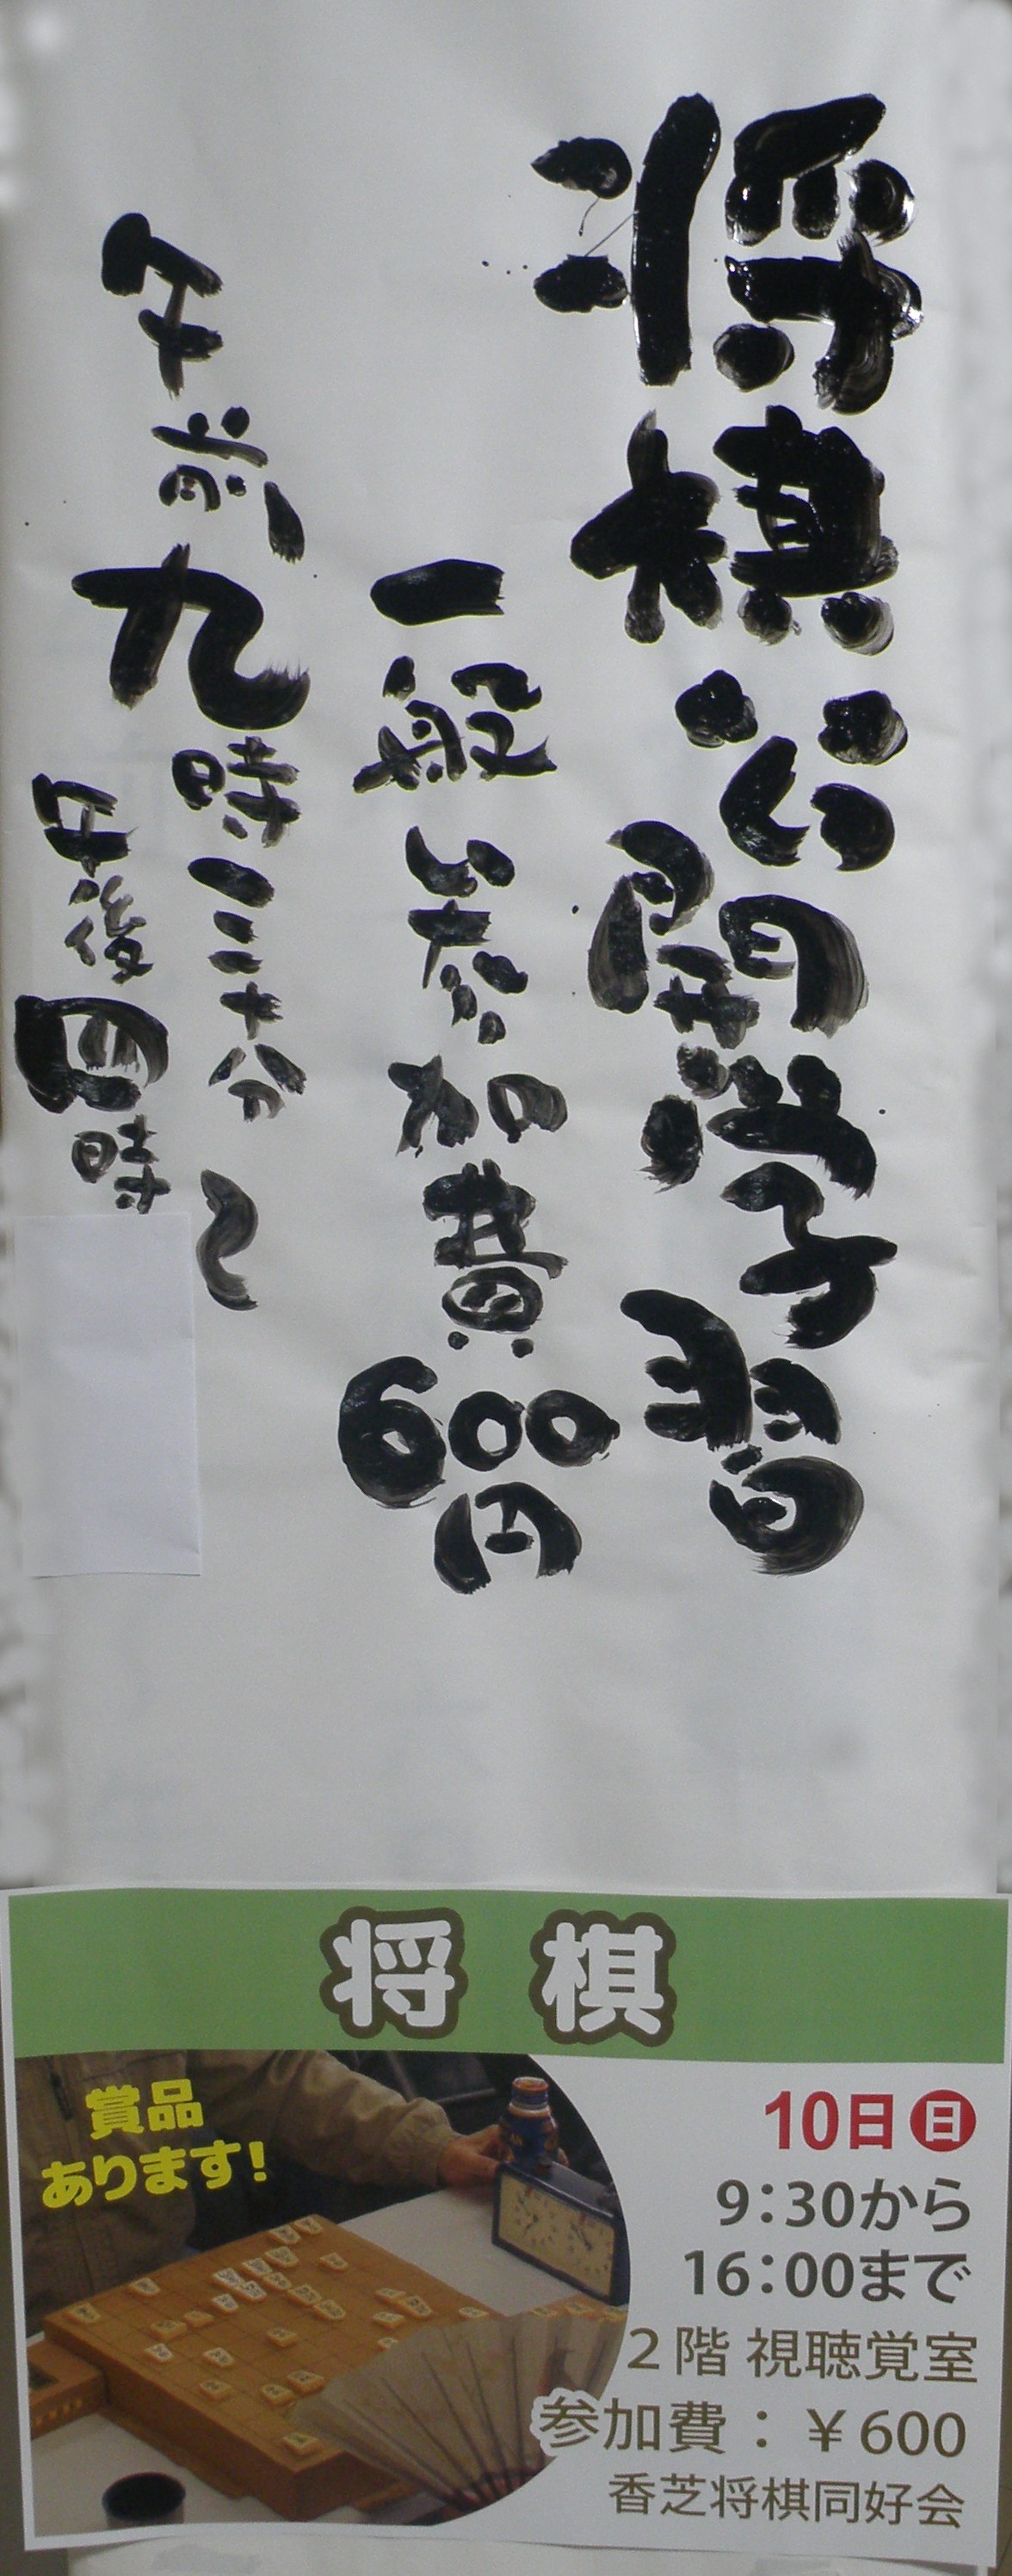 将棋公開学習
一般参加費600円
午前九時三十分〜
午後四時
将棋
賞品
あります!
10日日
9:30から
16:00まで
2階 視聴覚室
参加費:¥600
香芝将棋同好会